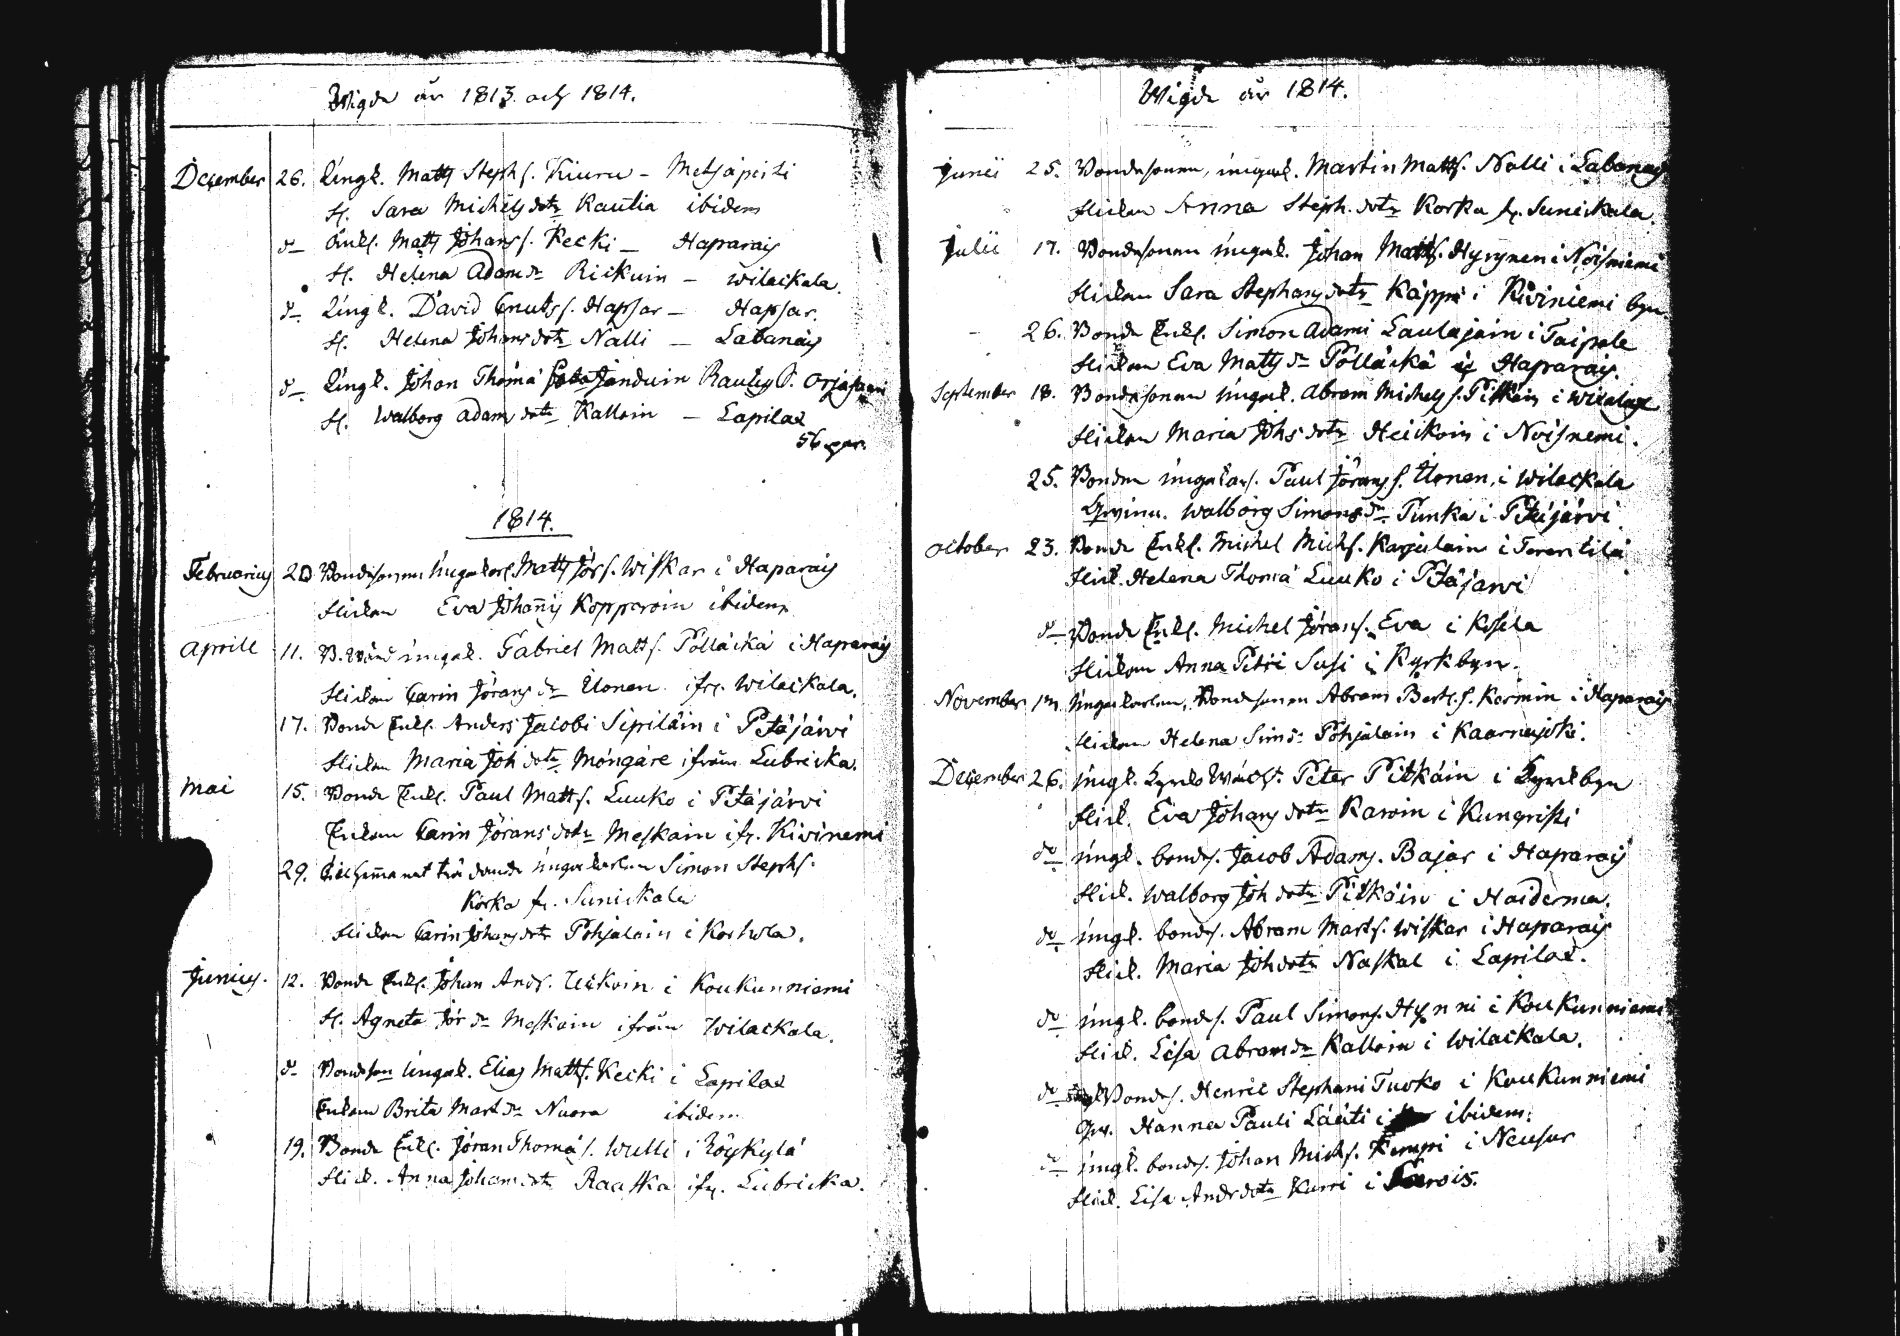 Wigde år 1813. och 1814.
December 26. Üngk. Matts Stephs. Kiuru - Metsäpirti
H. Sara Michels dotr Rautia ibidem
d- Enkl. Matts Johans s. Kecki - Haparais
H. Helena Adams dr Rickuin - Wilackala.
d- Üngk. David Cnuts s. Hapsar - Hapsar.
H. Helena Johans dotr Nalli - Labanais
d- Üngk. Johan Thomä Janduin Rautus S. Orjasaari
H. Walborg Adams dotr Kalloin - Lapilax
56 par.
1814.
Februarius 20 Bondesonen Üngkarl Matts Jörs. Wiskar i Haparais
Flickan Eva Johannis Kopparoin ibidem
Aprill 11. B. üngk. Gabriel Matts. Pölläckä i Haparais
Flickan Carin Jörans dr Ilonen ifr. Wilackala.
17. Bonde Enkl. Anders Jacobi Sipiläin i Petäjärvi
Flickan Maria Joh dotr Möngäre ifrån Lubricka.
Mai 15. Bonde Enkl. Paul Matts. Luuko i Petäjärvi
Enkan Carin Jörans dotr Meskain ifr. Kiviniemi
29. üngkarlen Simon Stephs.
Korka fr. Sunickala
Flickan Carin Johans dotr Pohjalain i Korhola.
Junius. 12. Bonde Enkl. Johan Ands. Uckoin i Koukunniemi
H. Agneta Jör dr Meskain ifrån Wilackala.
d- Bondeson Üngk. Elias Matts. Kecki i Lapilax
Enkan Brita Mart dr Nuora ibidem
19. Bonde Enkl. Jöran Thomä s. Wulli i Röykylä
Flick. Anna Johans dotr Raaska ifr. Lubricka.
Wigde år 1814.
Junii 25. Bondesonen, üngk. Martin Matts. Nalli i Labanais
Flickan Anna Steph. dotr Korka fr. Sunickala
Julii 17. Bondesonen üngk. Johan Matts. Hyrynen i Noisniemi
Flickan Sara Stephans dotr Käppi i Kiviniemi byn
26. Bonde Enkl. Simon Adami Laulajain i Taipale
Flickan Eva Matts dr Pölläckä i Haparais.
September 18. Bondesonen üngk. Abram Michels s. Pitkäin i
Flickan Maria Johs dotr Heickoin i Noisnemi.
25. Bonden üngkarl. Paul Jörans s. Ilonen, i Wilackala
Qvinn. Walborg Simons dr Punka i Petäjärvi.
October 23. Bonde Enkl. Michel Michs. Karjalain i Terentilä
Flick. Helena Thomä Luuko i Petäjärvi
d- Bonde Enkl. Michel Jörans. Eva i Kosela
Flickan Anna Petri Susi i Kyrkbyn.
November Üngkarlen, Bondesonen Abram Berts. s. Kormin i Haparais
Flickan Helena Sims dr Pohjalain i Kaarnajoki.
December 26. Üngk. Peter Pitkäin i Kyrkbyn
Flick. Eva Johans dotr Karvin i Kunnristi
do üngk. bondes. Jacob Adams. Bajar i Haparais
Flick. Walborg Joh dotr Pitkäin i Haiderma.
do üngk. bondes. Abram Marts. Wiskar i Haparais
Flick. Maria Joh dotr Naskal i Lapilax.
do üngk. bondes. Paul Simons. Hynni i Koukunniemi
Flick. Lisa Abrams dr Kalloin i Wilackala.
do Bondes. Henric Stephani Tuoko i Koukunniemi
Qv. Hanna Pauli Lääti i ibidem.
d- üngk. bondes. Johan Michs. Kemppi i Neusur
Flick. Lisa Andr dotr Kurri i